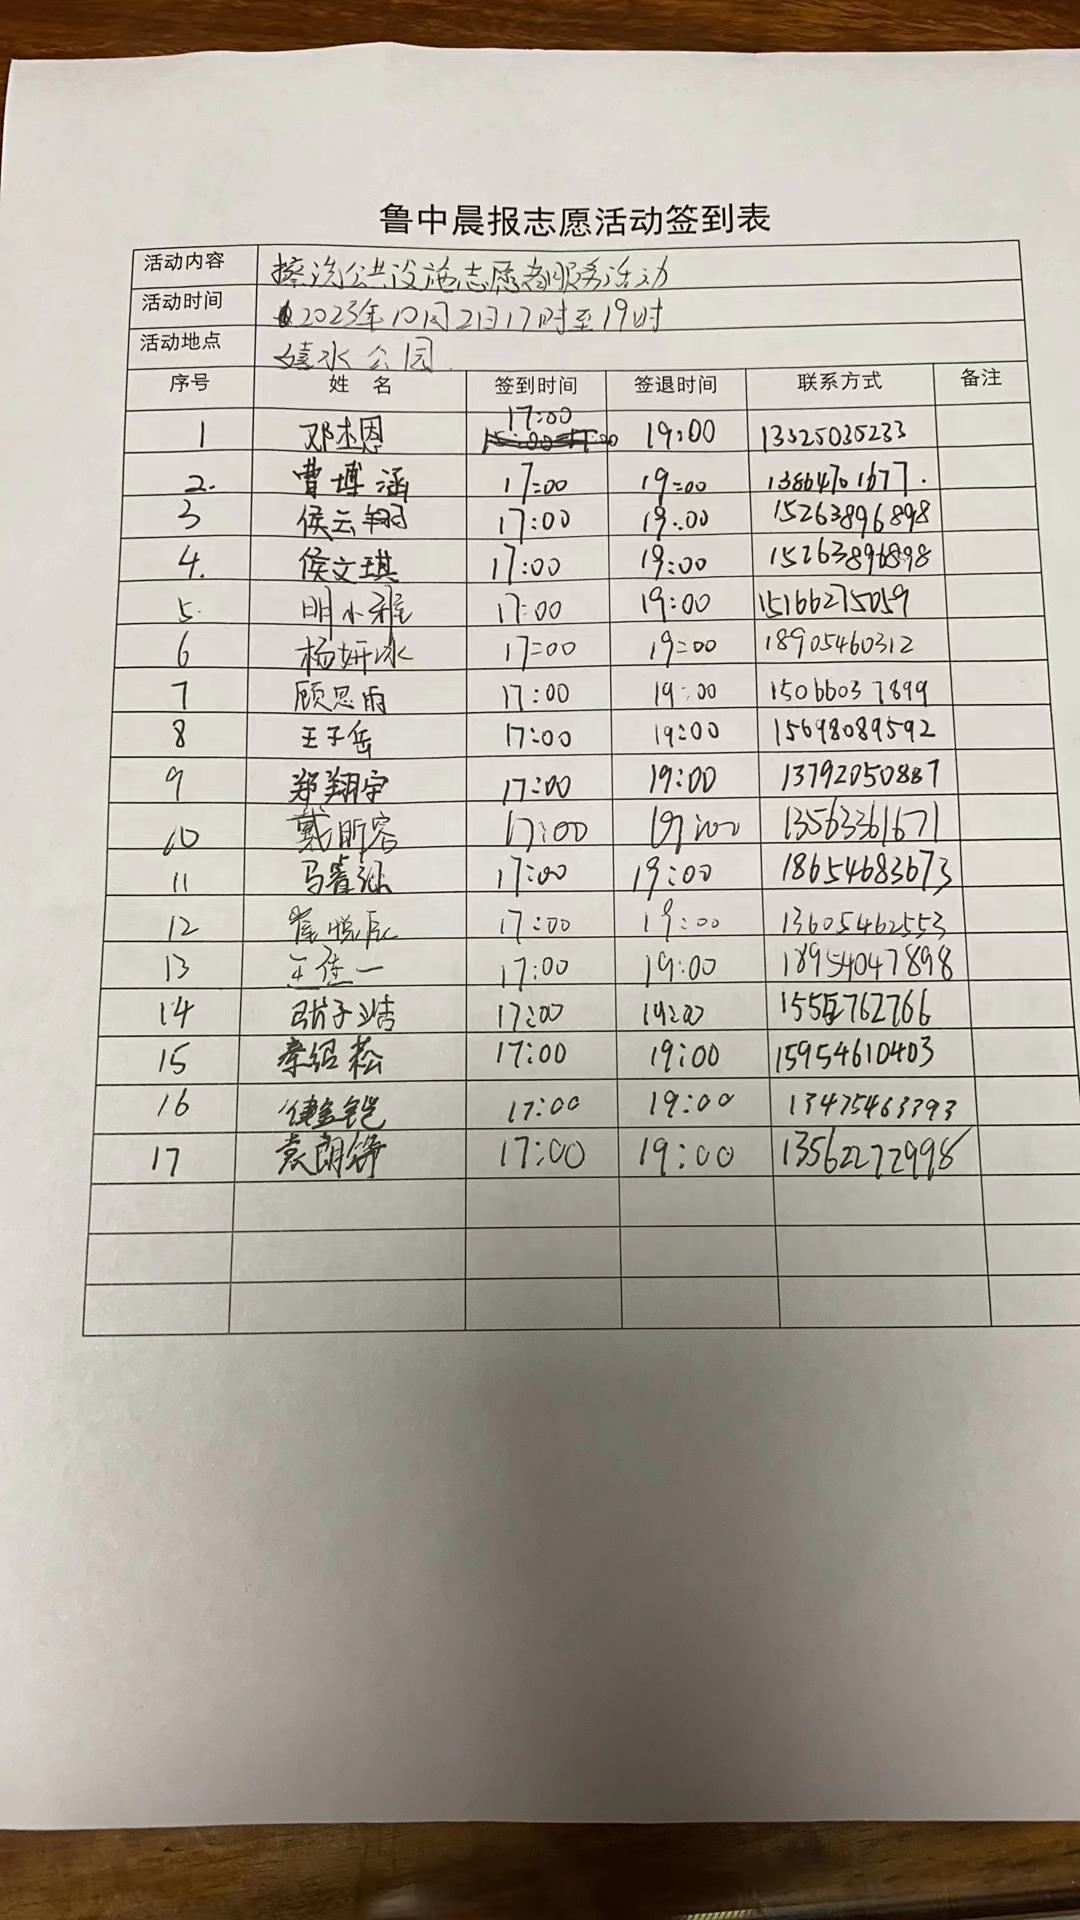 鲁中晨报志愿活动签到表
活动内容 擦洗公共设施志愿者服务活动
活动时间 2023年10月21日17时至19时
活动地点 嬉水公园
序号 姓 名 签到时间 签退时间 联系方式 备注
1 邓杰恩 17:00 19:00 13325035233
2. 曹博涵 17:00 19:00 13864701677.
3 侯云翔 17:00 19:00 15263896898
4. 侯文琪 17:00 19:00 15263896898
5. 明小雅 17:00 19:00 15166275059
6 杨妍冰 17:00 19:00 18905460312
7 顾思雨 17:00 19:00 15066037899
8 王子岳 17:00 19:00 15698089592
9 郑翔宇 17:00 19:00 13792050887
10 戴昕容 17:00 19:00 13563361671
11 马睿涵 17:00 19:00 18654683673
12 崔悦辰 17:00 19:00 13605462553
13 王佳一 17:00 19:00 18954047898
14 张子洁 17:00 19:00
15 秦绍松 17:00 19:00 15954610403
16 17:00 19:00 13475463393
17 袁朗铮 17:00 19:00 13562272998